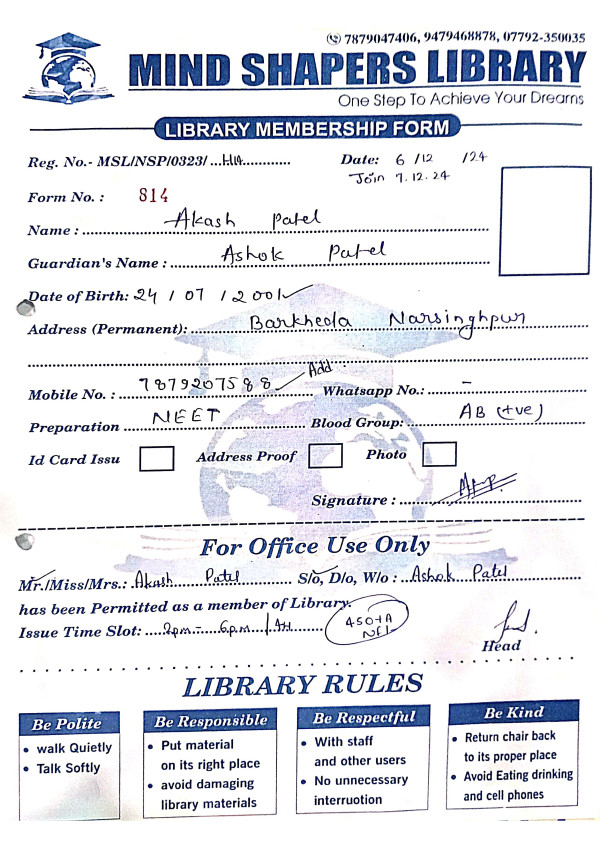 7879047406, 9479468878, 07792-350035
MIND SHAPERS LIBRARY
One Step To Achieve Your Dreams
LIBRARY MEMBERSHIP FORM
Reg. No.- MSL/NSP/0323/ Date: 6 /12 /24
Join 7.12.24
Form No. : 814
Name : Akash Patel
Guardian's Name : Ashok Patel
Date of Birth: 24 / 07 / 2001
Address (Permanent): Barkheda Narsinghpur
Add
Mobile No. : 7879207588 Whatsapp No.: -
Preparation NEET Blood Group: AB (+ve)
Id Card Issu Address Proof Photo
Signature :
For Office Use Only
Mr./Miss/Mrs.: Akash Patel S/o, D/o, W/o : Ashok Patel
has been Permitted as a member of Library.
Issue Time Slot: 2pm - 6pm
Head
LIBRARY RULES
Be Polite
• walk Quietly
• Talk Softly
Be Responsible
• Put material
on its right place
• avoid damaging
library materials
Be Respectful
• With staff
and other users
• No unnecessary
interruotion
Be Kind
• Return chair back
to its proper place
• Avoid Eating drinking
and cell phones